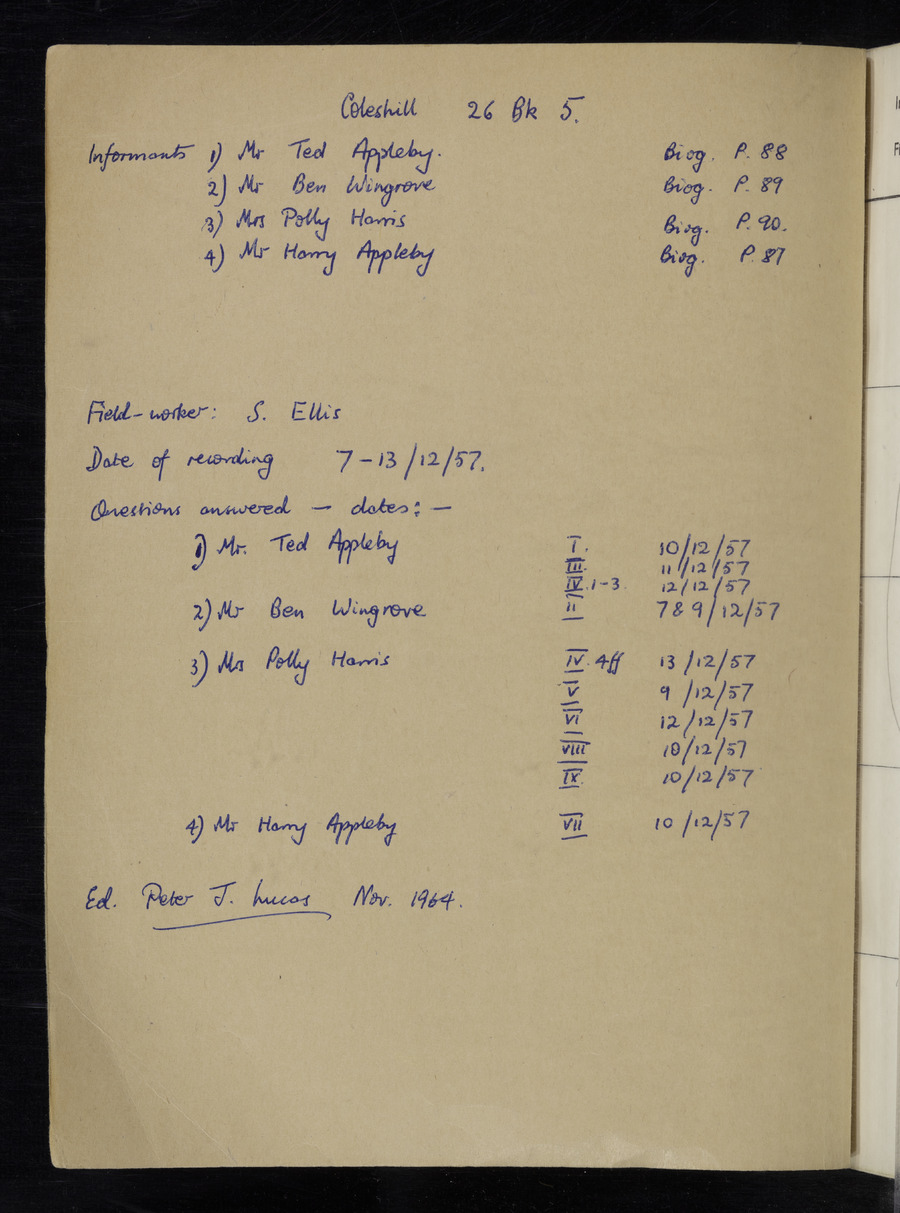 Coleshill 26 Bk 5.
Informants 1) Mr Ted Appleby. Biog. P. 88
2) Mr Ben Wingrove Biog. P. 89
3) Mrs Polly Harris Biog. P. 90.
4) Mr Harry Appleby Biog. P. 87
Field-worker: S. Ellis
Date of recording 7-13/12/57.
Questions answered — dates: —
1) Mr. Ted Appleby I. 10/12/57
III. 11/12/57
IV. 1-3. 12/12/57
2) Mr Ben Wingrove II 7 & 9/12/57
3) Mrs Polly Harris IV. 4ff 13/12/57
V 9/12/57
VI 12/12/57
VIII 10/12/57
IX 10/12/57
4) Mr Harry Appleby VII 10/12/57
Ed. Peter J. Lucas Nov. 1964.